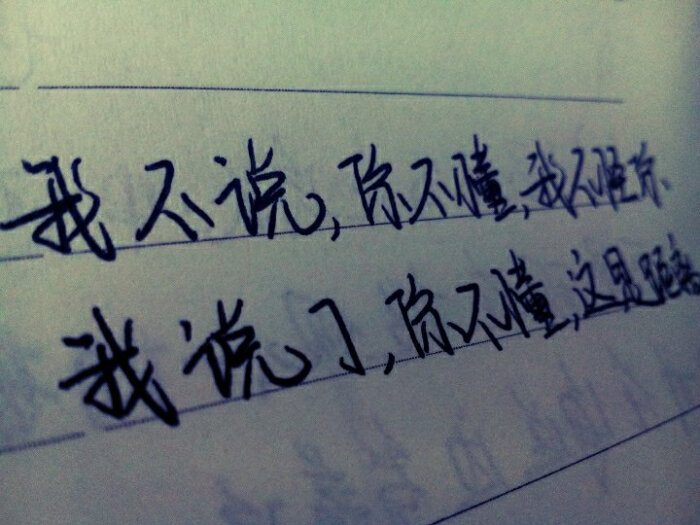 我不说,你不懂,我不怪你
我说了,你不懂,这是距离